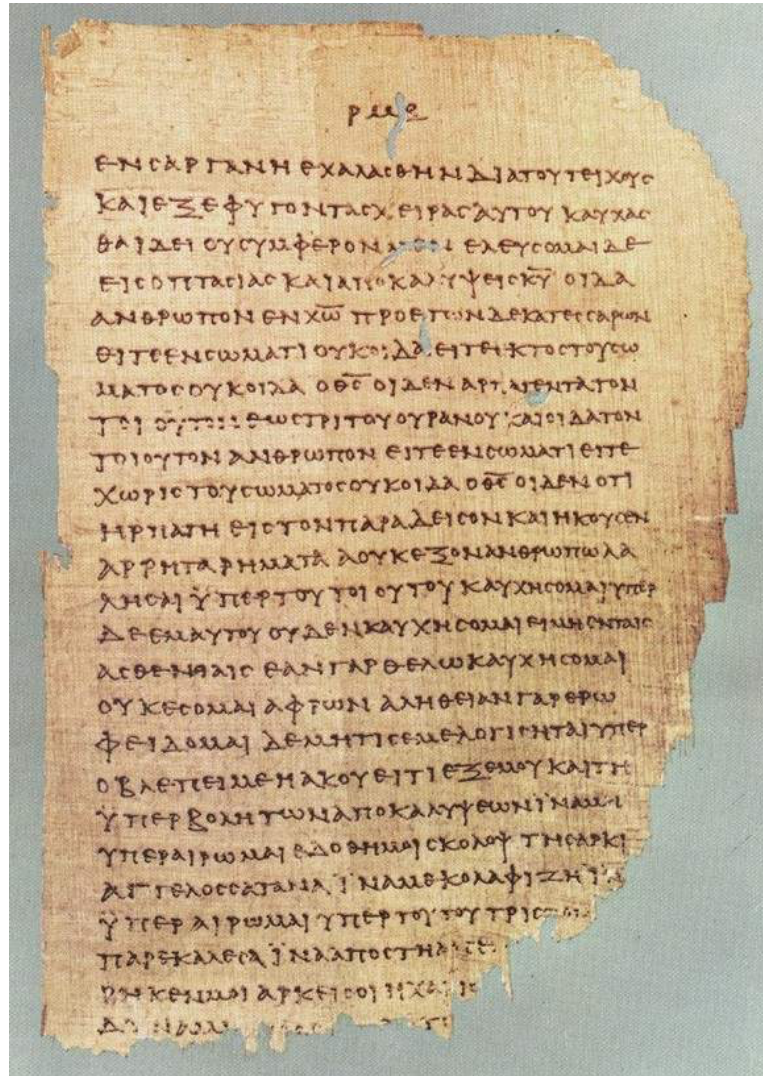 ρμε
ΕΝϹΑΡΓΑΝΗ ΕΧΑΛΑϹΘΗΝ ΔΙΑ ΤΟΥ ΤΕΙΧΟΥϹ
ΚΑΙ ΕΞΕΦΥΓΟΝ ΤΑϹ ΧΕΙΡΑϹ ΑΥΤΟΥ ΚΑΥΧΑϹ
ΘΑΙ ΔΕΙ ΟΥ ϹΥΜΦΕΡΟΝ ΜΕΝ ΕΛΕΥϹΟΜΑΙ ΔΕ
ΕΙϹ ΟΠΤΑϹΙΑϹ ΚΑΙ ΑΠΟΚΑΛΥΨΕΙϹ Κ̅Υ̅ ΟΙΔΑ
ΑΝΘΡΩΠΟΝ ΕΝ Χ̅Ω̅ ΠΡΟ ΕΤΩΝ ΔΕΚΑΤΕϹϹΑΡΩΝ
ΕΙΤΕ ΕΝ ϹΩΜΑΤΙ ΟΥΚ ΟΙΔΑ ΕΙΤΕ ΕΚΤΟϹ ΤΟΥ ϹΩ
ΜΑΤΟϹ ΟΥΚ ΟΙΔΑ Ο Θ̅Ϲ̅ ΟΙΔΕΝ ΑΡΠΑΓΕΝΤΑ ΤΟΝ
ΤΟΙΟΥΤΟΝ ΕΩϹ ΤΡΙΤΟΥ ΟΥΡΑΝΟΥ ΚΑΙ ΟΙΔΑ ΤΟΝ
ΤΟΙΟΥΤΟΝ ΑΝΘΡΩΠΟΝ ΕΙΤΕ ΕΝ ϹΩΜΑΤΙ ΕΙΤΕ
ΧΩΡΙϹ ΤΟΥ ϹΩΜΑΤΟϹ ΟΥΚ ΟΙΔΑ Ο Θ̅Ϲ̅ ΟΙΔΕΝ ΟΤΙ
ΗΡΠΑΓΗ ΕΙϹ ΤΟΝ ΠΑΡΑΔΕΙϹΟΝ ΚΑΙ ΗΚΟΥϹΕΝ
ΑΡΡΗΤΑ ΡΗΜΑΤΑ Α ΟΥΚ ΕΞΟΝ ΑΝΘΡΩΠΩ ΛΑ
ΛΗϹΑΙ ΫΠΕΡ ΤΟΥ ΤΟΙΟΥΤΟΥ ΚΑΥΧΗϹΟΜΑΙ ΥΠΕΡ
ΔΕ ΕΜΑΥΤΟΥ ΟΥΔΕΝ ΚΑΥΧΗϹΟΜΑΙ ΕΙ ΜΗ ΕΝ ΤΑΙϹ
ΑϹΘΕΝΕΙΑΙϹ ΕΑΝ ΓΑΡ ΘΕΛΩ ΚΑΥΧΗϹΟΜΑΙ
ΟΥΚ ΕϹΟΜΑΙ ΑΦΡΩΝ ΑΛΗΘΕΙΑΝ ΓΑΡ ΕΡΩ
ΦΕΙΔΟΜΑΙ ΔΕ ΜΗ ΤΙϹ ΕΜΕ ΛΟΓΙϹΗΤΑΙ ΥΠΕΡ
Ο ΒΛΕΠΕΙ ΜΕ Η ΑΚΟΥΕΙ ΤΙ ΕΞ ΕΜΟΥ ΚΑΙ ΤΗ
ΫΠΕΡΒΟΛΗ ΤΩΝ ΑΠΟΚΑΛΥΨΕΩΝ ΪΝΑ ΜΗ
ΥΠΕΡΑΙΡΩΜΑΙ ΕΔΟΘΗ ΜΟΙ ϹΚΟΛΟΨ ΤΗ ϹΑΡΚΙ
ΑΓΓΕΛΟϹ ϹΑΤΑΝΑ ΪΝΑ ΜΕ ΚΟΛΑΦΙΖΗ ΪΝΑ
ΫΠΕΡΑΙΡΩΜΑΙ ΥΠΕΡ ΤΟΥΤΟΥ ΤΡΙϹ
ΠΑΡΕΚΑΛΕϹΑ ΪΝΑ ΑΠΟϹΤΗ
ΡΗΚΕΝ ΜΟΙ ΑΡΚΕΙ ϹΟΙ Η ΧΑΡΙϹ